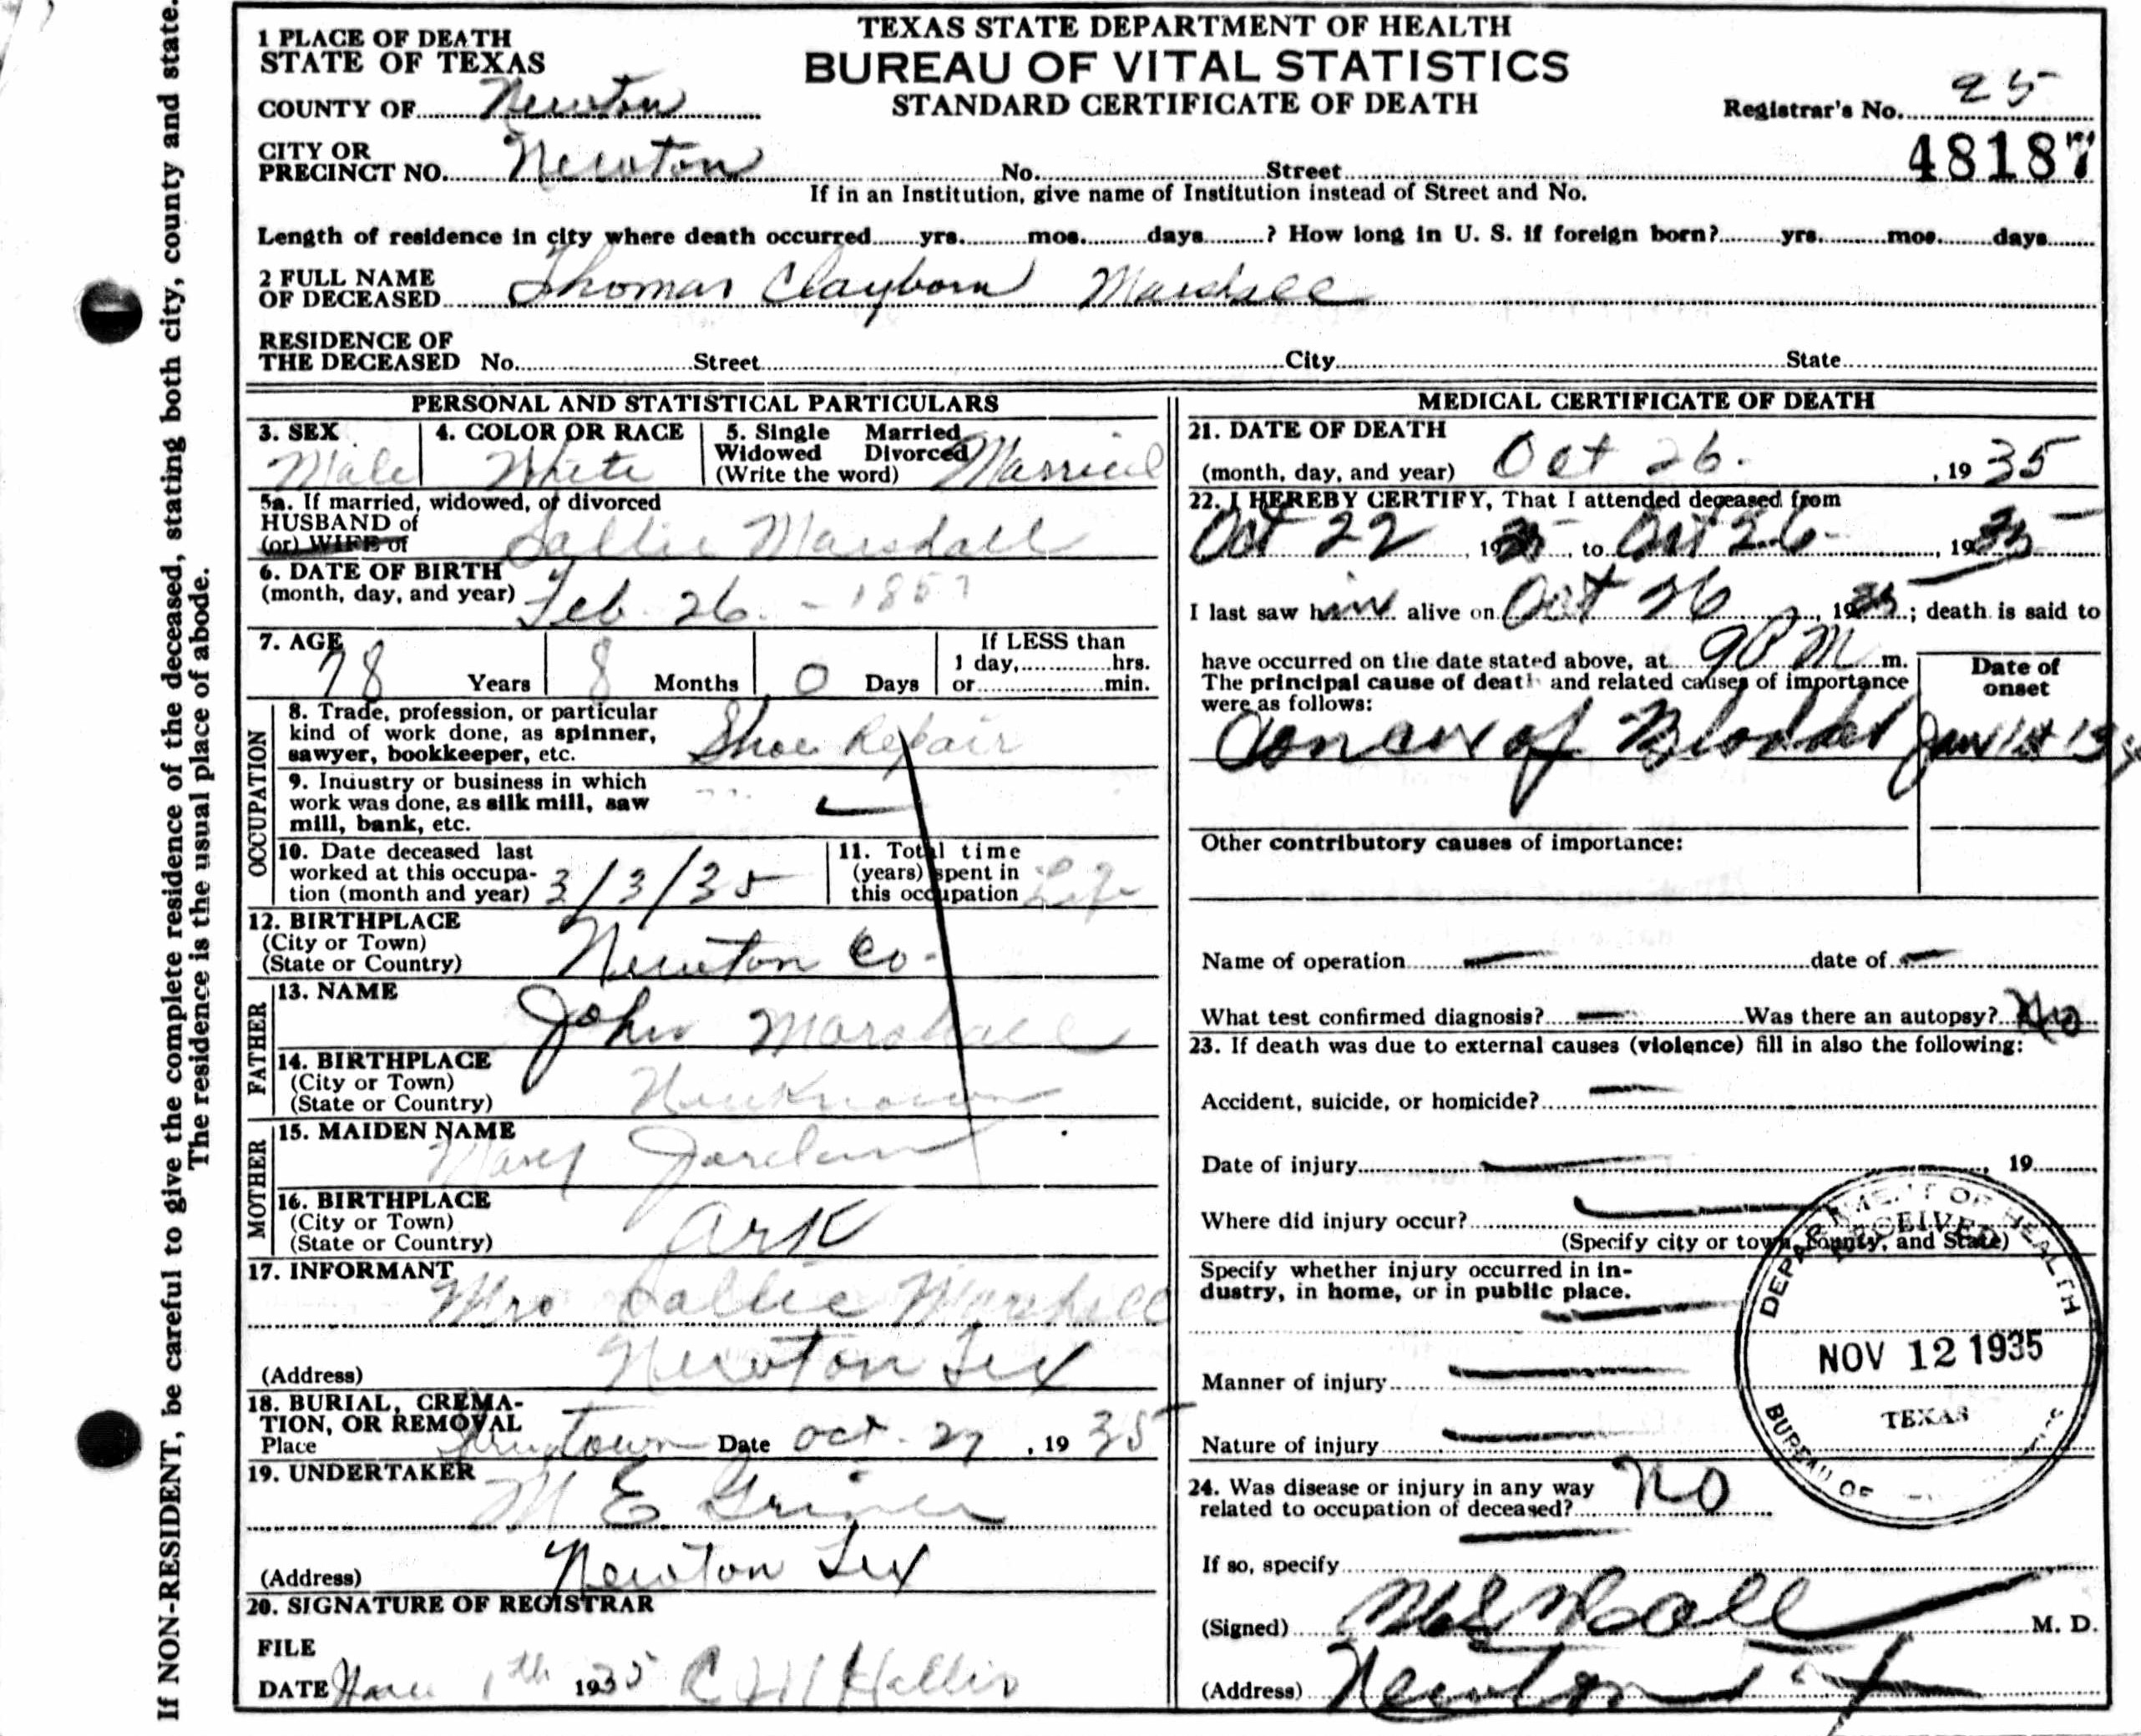 TEXAS STATE DEPARTMENT OF HEALTH
BUREAU OF VITAL STATISTICS
STANDARD CERTIFICATE OF DEATH
1 PLACE OF DEATH
STATE OF TEXAS
COUNTY OF Newton
Registrar's No. 25
CITY OR
PRECINCT NO. Newton No. Street 48187
If in an Institution, give name of Institution instead of Street and No.
Length of residence in city where death occurred yrs. mos. days ? How long in U. S. if foreign born? yrs. mos. days
2 FULL NAME
OF DECEASED Thomas Clayborn Marshall
RESIDENCE OF
THE DECEASED No. Street City State
If NON-RESIDENT, be careful to give the complete residence of the deceased, stating both city, county and state.
The residence is the usual place of abode.
PERSONAL AND STATISTICAL PARTICULARS
3. SEX Male
4. COLOR OR RACE White
5. Single Married
Widowed Divorced
(Write the word) Married
5a. If married, widowed, or divorced
HUSBAND of
(or) WIFE of Sallie Marshall
6. DATE OF BIRTH
(month, day, and year) Feb. 26 - 1857
7. AGE
78 Years 8 Months 0 Days
If LESS than
1 day, hrs.
or min.
OCCUPATION
8. Trade, profession, or particular
kind of work done, as spinner,
sawyer, bookkeeper, etc. Shoe Repair
9. Industry or business in which
work was done, as silk mill, saw
mill, bank, etc.
10. Date deceased last
worked at this occupa-
tion (month and year) 3/3/35
11. Total time
(years) spent in
this occupation Life
12. BIRTHPLACE
(City or Town)
(State or Country) Newton Co.
FATHER
13. NAME John Marshall
14. BIRTHPLACE
(City or Town)
(State or Country)
MOTHER
15. MAIDEN NAME Mary Jordan
16. BIRTHPLACE
(City or Town)
(State or Country) Ark
17. INFORMANT
Mrs Sallie Marshall
(Address) Newton Tex
18. BURIAL, CREMA-
TION, OR REMOVAL
Place Date Oct. 27, 1935
19. UNDERTAKER
M E Griner
(Address) Newton Tex
20. SIGNATURE OF REGISTRAR
FILE
DATE 1th 1935 Hollis
MEDICAL CERTIFICATE OF DEATH
21. DATE OF DEATH
(month, day, and year) Oct 26. , 1935
22. I HEREBY CERTIFY, That I attended deceased from
Oct 22, 1935, to Oct 26, 1935
I last saw him alive on Oct 26, 1935; death is said to
have occurred on the date stated above, at 9 P M m.
The principal cause of death and related causes of importance
were as follows:
Date of
onset
Cancer of Bladder Jan 1st
Other contributory causes of importance:
Name of operation date of
What test confirmed diagnosis? Was there an autopsy? No
23. If death was due to external causes (violence) fill in also the following:
Accident, suicide, or homicide?
Date of injury , 19
Where did injury occur?
(Specify city or town, county, and State)
Specify whether injury occurred in in-
dustry, in home, or in public place.
Manner of injury
Nature of injury
24. Was disease or injury in any way
related to occupation of deceased? No
If so, specify
(Signed) M. D.
(Address) Newton Tex
DEPARTMENT OF HEALTH
RECEIVED
NOV 12 1935
TEXAS
BUREAU OF